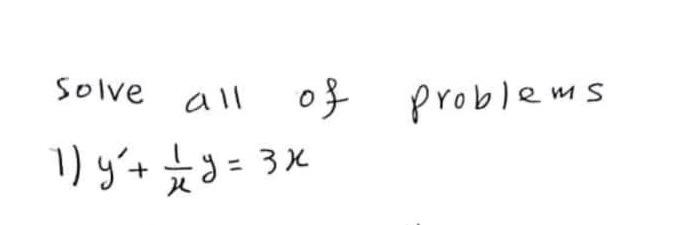 Solve all of problems
1) y′ + 1/x y = 3x